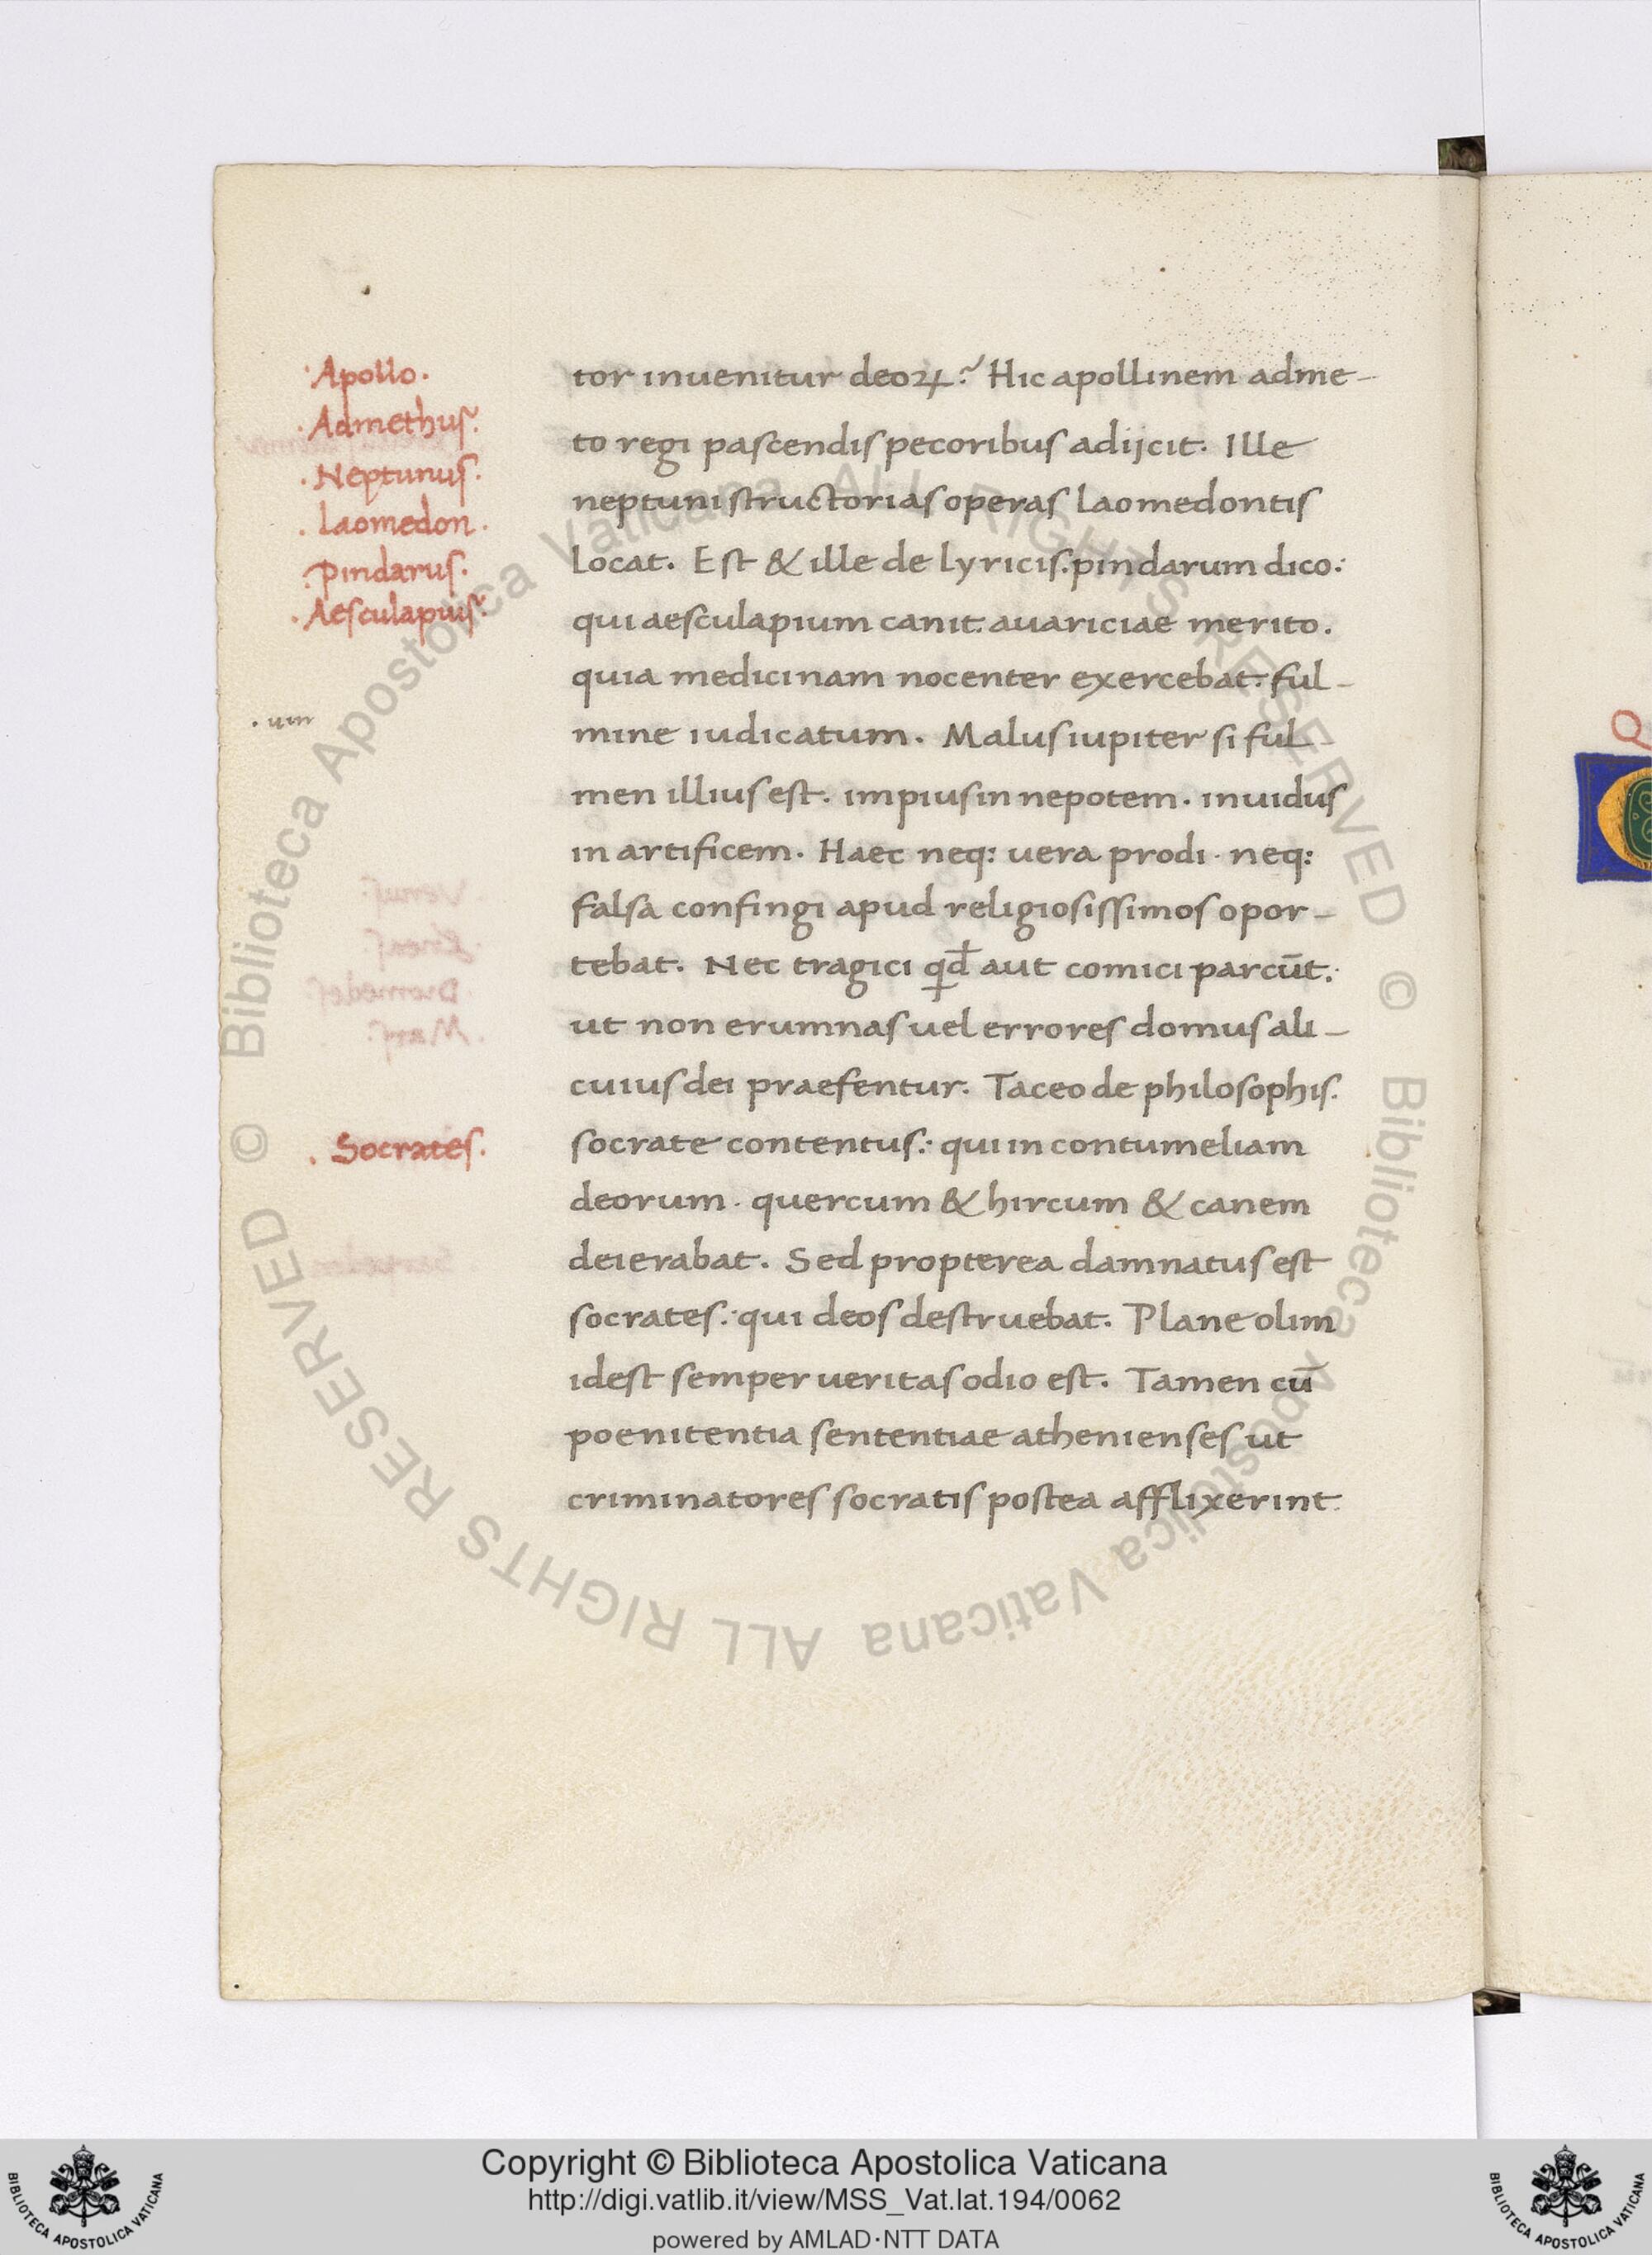 ·Apollo·
·Admethus·
·Neptunus·
·Laomedon·
·Pindarus·
·Aesculapius·
·um
·Socrates·
tor inuenitur deoꝝ? Hic apollinem adme-
to regi pascendis pecoribus adijcit. Ille
neptuni structorias operas laomedontis
locat. Est & ille de lyricis. pindarum dico:
qui aesculapium canit: auariciae merito.
quia medicinam nocenter exercebat: ful-
mine iudicatum. Malus iupiter si ful-
men illius est. impius in nepotem. inuidus
in artificem. Haec neq: uera prodi· neq:
falsa confingi apud religiosissimos opor-
tebat. Nec tragici qđ aut comici parcūt:
ut non erumnas uel errores domus ali-
cuius dei praefentur. Taceo de philosophis.
socrate contentus: qui in contumeliam
deorum· quercum & hircum & canem
deierabat. Sed propterea damnatus est
socrates: qui deos destruebat. Plane olim
idest semper ueritas odio est. Tamen cū
poenitentia sententiae athenienses ut
criminatores socratis postea afflixerint
© Biblioteca Apostolica Vaticana ALL RIGHTS RESERVED © Biblioteca Apostolica Vaticana ALL RIGHTS RESERVED
Copyright © Biblioteca Apostolica Vaticana
http://digi.vatlib.it/view/MSS_Vat.lat.194/0062
powered by AMLAD·NTT DATA
BIBLIOTECA APOSTOLICA VATICANA
BIBLIOTECA APOSTOLICA VATICANA